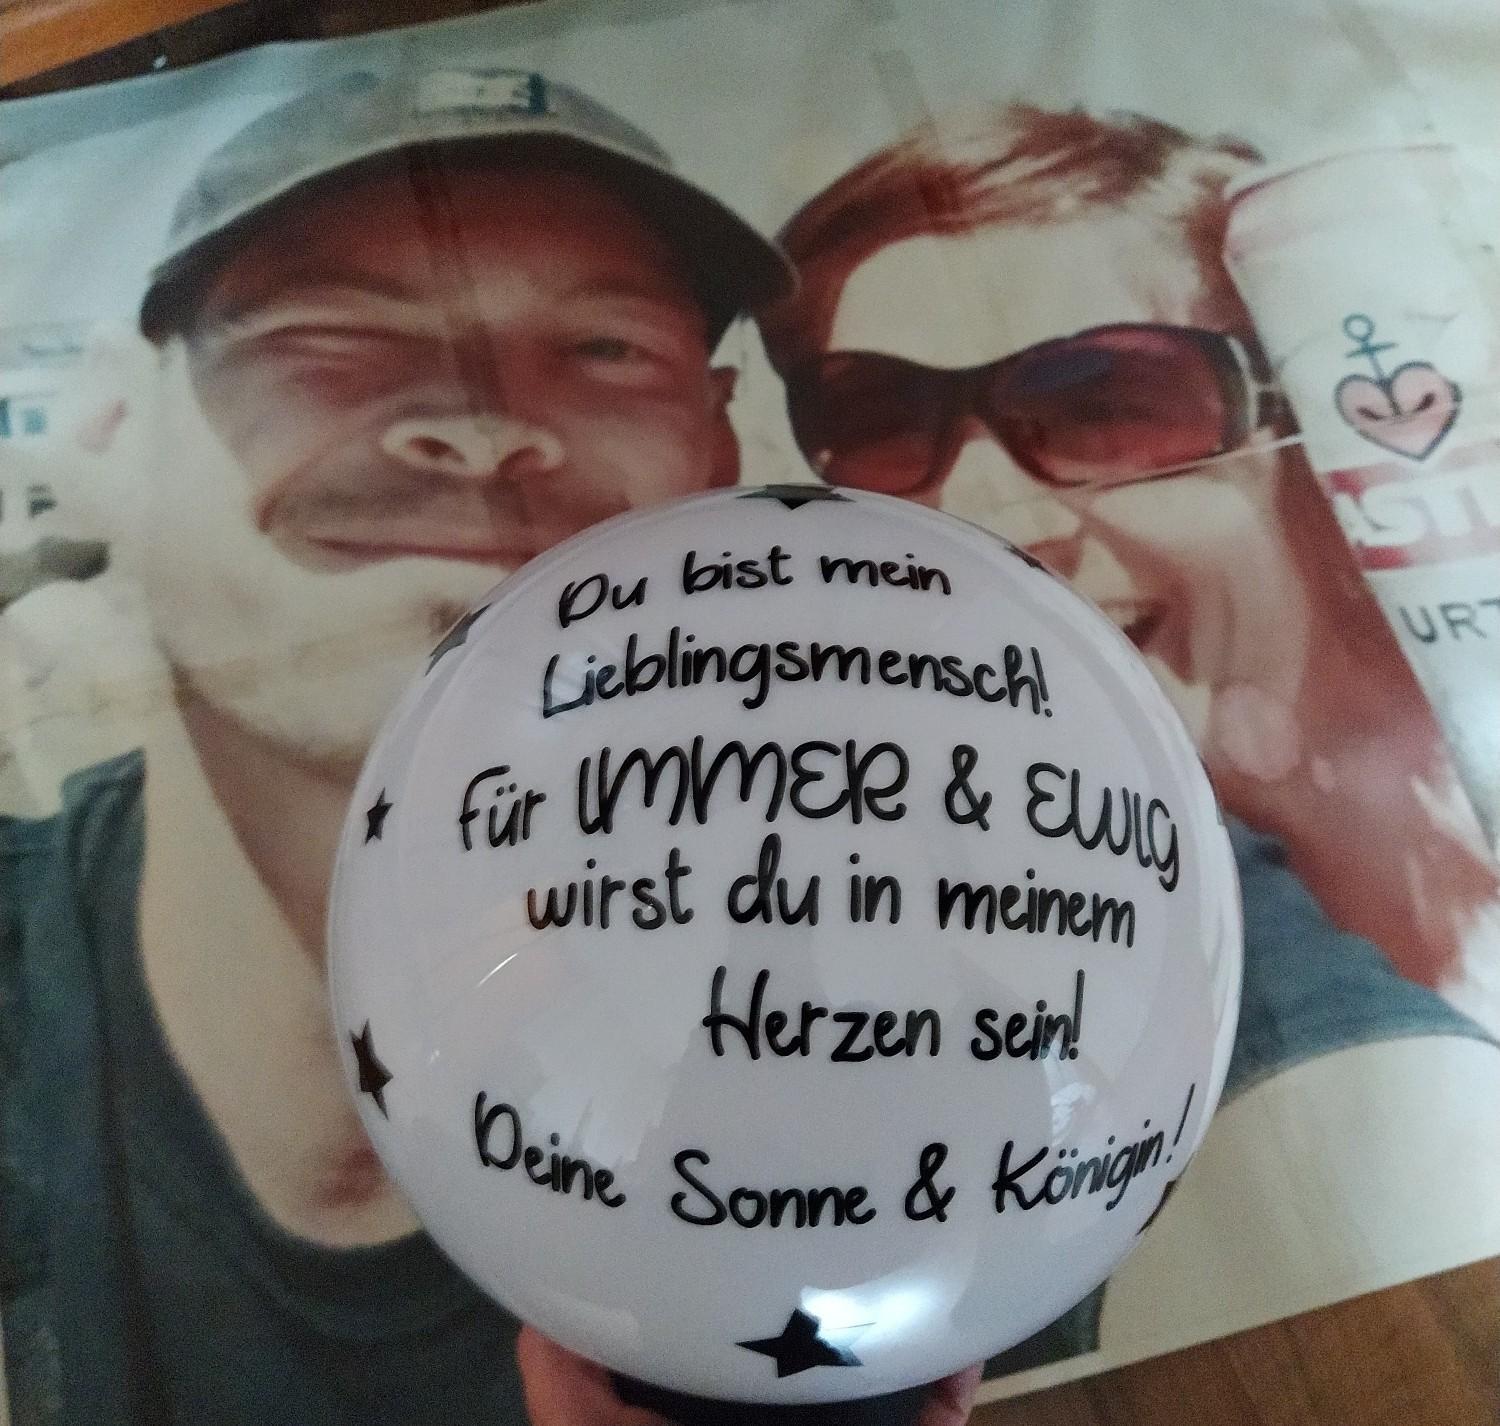 Du bist mein
Lieblingsmensch!
Für IMMER & EWIG
wirst du in meinem
Herzen sein!
Deine Sonne & Königin!